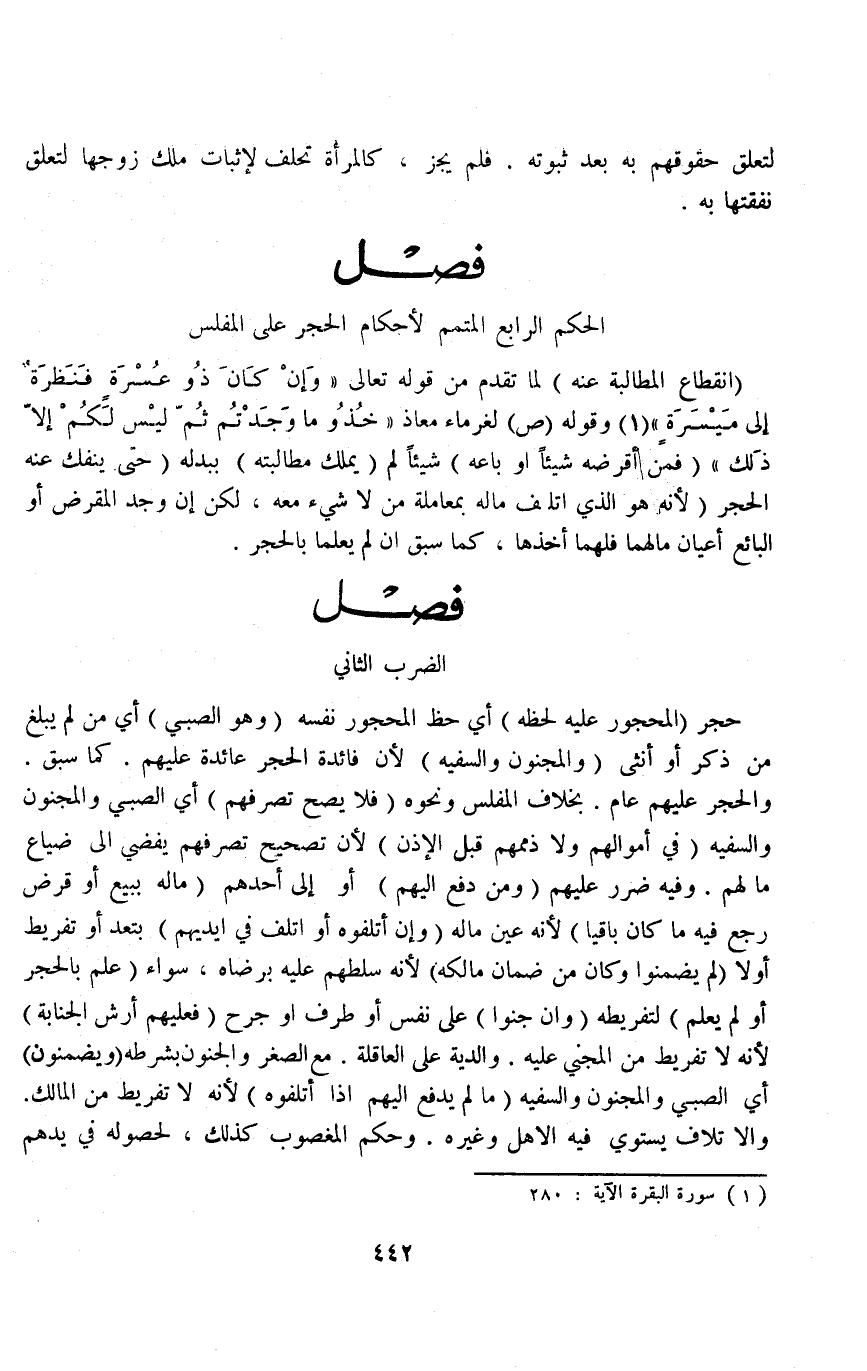 لتعلق حقوقهم به بعد ثبوته . فلم يجز ، كالمرأة تحلف لإثبات ملك زوجها لتعلق
نفقتها به .
فصل
الحكم الرابع المتمم لأحكام الحجر على المفلس
(انقطاع المطالبة عنه ) لما تقدم من قوله تعالى « وَإنْ كَانَ ذُو عُسْرَةٍ فَنَظِرَةٌ
إلى مَيْسَرَةٍ »(١) وقوله (ص) لغرماء معاذ « خُذُو ما وَجَدْتُم ثُمّ ليْس لَكُمْ إلاّ
ذلك » ( فمن أقرضه شيئاً او باعه ) شيئاً لم ( يملك مطالبته ) ببدله ( حتى ينفك عنه
الحجر ( لأنه هو الذي اتلف ماله بمعاملة من لا شيء معه ، لكن إن وجد المقرض أو
البائع أعيان مالهما فلهما أخذها ، كما سبق ان لم يعلما بالحجر .
فصل
الضرب الثاني
حجر (المحجور عليه لحظه ) أي حظ المحجور نفسه ( وهو الصبي ) أي من لم يبلغ
من ذكر أو أنثى ( والمجنون والسفيه ) لأن فائدة الحجر عائدة عليهم . كما سبق .
والحجر عليهم عام . بخلاف المفلس ونحوه ( فلا يصح تصرفهم ) أي الصبي والمجنون
والسفيه ( في أموالهم ولا ذممهم قبل الإذن ) لأن تصحيح تصرفهم يفضي الى ضياع
ما لهم . وفيه ضرر عليهم ( ومن دفع اليهم ) أو إلى أحدهم ( ماله ببيع أو قرض
رجع فيه ما كان باقيا ) لأنه عين ماله ( وإن أتلفوه أو اتلف في ايديهم ) بتعد أو تفريط
أولا (لم يضمنوا وكان من ضمان مالكه) لأنه سلطهم عليه برضاه ، سواء ( علم بالحجر
أو لم يعلم ) لتفريطه ( وان جنوا ) على نفس أو طرف او جرح ( فعليهم أرش الجناية )
لأنه لا تفريط من المجني عليه . والدية على العاقلة . مع الصغر والجنون بشرطه(ويضمنون)
أي الصبي والمجنون والسفيه ( ما لم يدفع اليهم اذا أتلفوه ) لأنه لا تفريط من المالك.
والاتلاف يستوي فيه الاهل وغيره . وحكم المغصوب كذلك ، لحصوله في يدهم
( ١ ) سورة البقرة الآية : ٢٨٠
٤٤٢